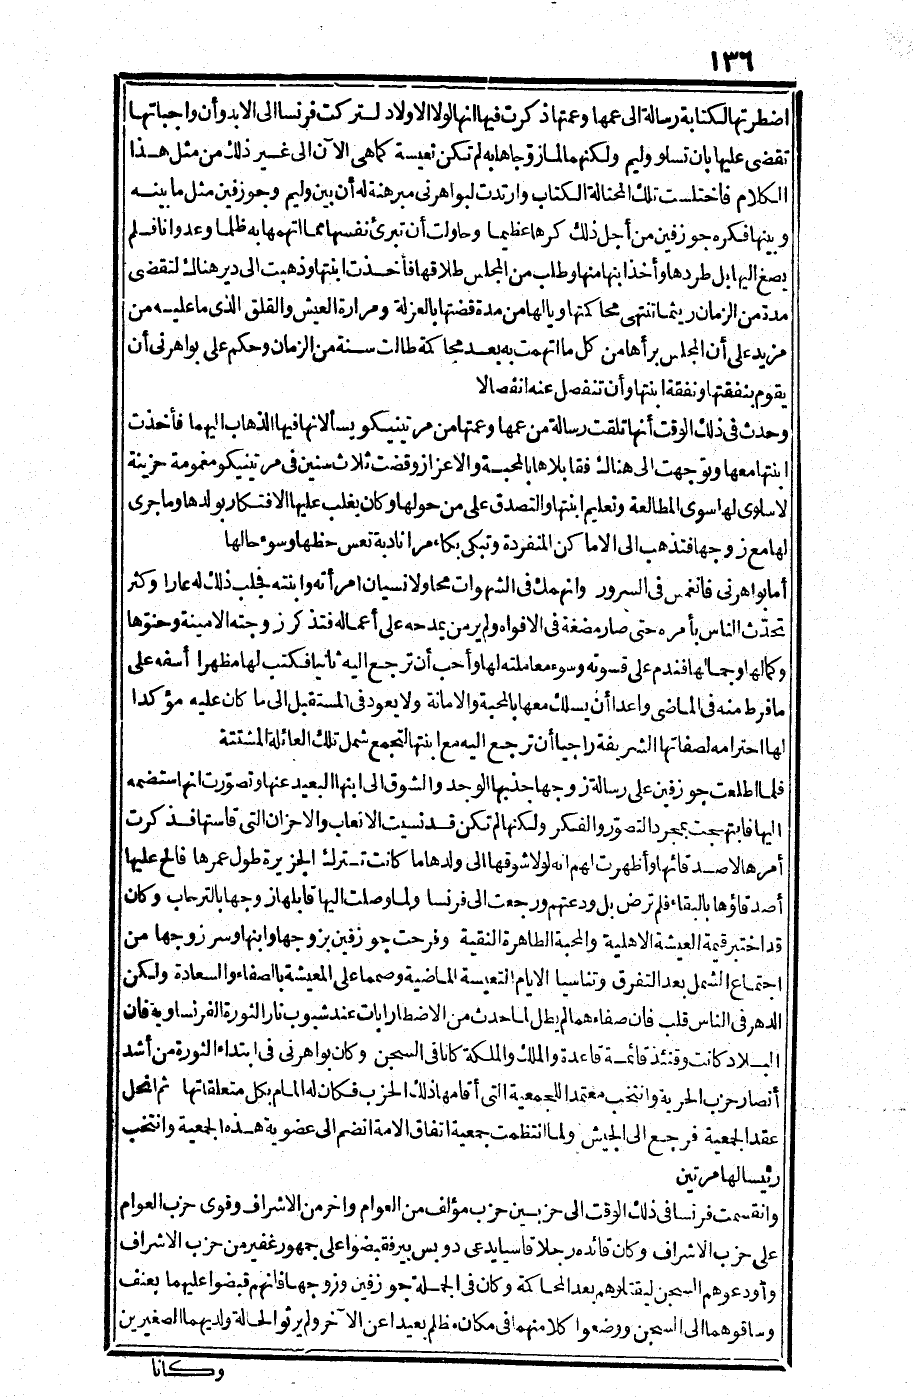 ١٣٦
اضطرتها لكتابة رسالة الى عمها وعمتها ذكرت فيها انها لولا الاولاد لتركت فرنسا الى الابد وأن واجباتها
تقضى عليها بان تسلو وليم ولكنها لما زوجاها به لم تكن تعيسة كما هى الآن الى غير ذلك من مثل هذا
الكلام فاختلست تلك المحتالة الكتاب وارتدت لبواهرنى مبرهنة له أن بين وليم وجوزفين مثل ما بينه
وبينها فكره جوزفين من أجل ذلك كرها عظيما وحاولت أن تبرئ نفسها مما اتهمها به ظلما وعدوانا فلم
يصغ اليها بل طردها وأخذ ابنها منها وطلب من المجلس طلاقها فأخذت ابنتها وذهبت الى دير هناك لتقضى
مدة من الزمان ريثما تنتهى محاكمتها ويالها من مدة قضتها بالعزلة ومرارة العيش والقلق الذى ما عليه من
مزيد على أن المجلس برأها من كل ما اتهمت به بعد محاكمة طالت سنة من الزمان وحكم على بواهرنى أن
يقوم بنفقتها ونفقة ابنتها وأن تنفصل عنه انفصالا
وحدث فى ذلك الوقت أنها تلقت رسالة من عمها وعمتها من مرتينيكو يسألانها فيها الذهاب اليهما فأخذت
ابنتها معها وتوجهت الى هناك فقابلاها بالمحبة والاعزاز وقضت ثلاث سنين فى مرتينيكو مغمومة حزينة
لا سلوى لها سوى المطالعة وتعليم ابنتها والتصدق على من حولها وكان يغلب عليها الافتكار بولدها وما جرى
لها مع زوجها فتذهب الى الاماكن المنفردة وتبكى بكاء مرا نادبة تعس حظها وسوء حالها
أما بواهرنى فانغمس فى السرور وانهمك فى الشهوات محاولا نسيان امرأته وابنته فجلب ذلك له عارا وكثر
تحدّث الناس بأمره حتى صار مضغة فى الافواه ولم ير من يمدحه على أعماله فتذكر زوجته الامينة وحنوّها
وكمالها وجمالها فندم على قسوته وسوء معاملته لها وأحب أن ترجع اليه ثانيا فكتب لها مظهرا أسفه على
ما فرط منه فى الماضى واعدا أن يسلك معها بالمحبة والامانة ولا يعود فى المستقبل الى ما كان عليه مؤكدا
لها احترامه لصفاتها الشريفة راجيا أن ترجع اليه مع ابنتها لتجمع شمل تلك العائلة المشتتة
فلما اطلعت جوزفين على رسالة زوجها جذبها الوجد والشوق الى ابنها البعيد عنها وتصوّرت انها ستضمه
اليها فابتهجت بمجرد التصوّر والفكر ولكنها لم تكن قد نسيت الاتعاب والاحزان التى قاستها فذكرت
أمرها لاصدقائها وأظهرت لهم انه لولا شوقها الى ولدها ما كانت تترك الجزيرة طول عمرها فالح عليها
أصدقاؤها بالبقاء فلم ترض بل ودعتهم ورجعت الى فرنسا ولما وصلت اليها قابلها زوجها بالترحاب وكان
قد اختبر قيمة العيشة الاهلية والمحبة الطاهرة النقية وفرحت جوزفين بزوجها وابنها وسر زوجها من
اجتماع الشمل بعد التفرق وتناسيا الايام التعيسة الماضية وصمما على المعيشة بالصفاء والسعادة ولكن
الدهر فى الناس قلب فان صفاءهما لم يطل لما حدث من الاضطرابات عند شبوب نار الثورة الفرنساوية فان
البلاد كانت وقتئذ قائمة قاعدة والملك والملكة كانا فى السجن وكان بواهرنى فى ابتداء الثورة من أشد
أنصار حزب الحرية وانتخب معتمدا للجمعية التى أقامها ذلك الحزب فكان له المام بكل متعلقاتها ثم انحل
عقد الجمعية فرجع الى الجيش ولما انتظمت جمعية اتفاق الامة انضم الى عضوية هذه الجمعية وانتخب
رئيسا لها مرتين
وانقسمت فرنسا فى ذلك الوقت الى حزبين حزب مؤلف من العوام واخر من الاشراف وقوى حزب العوام
على حزب الاشراف وكان قائده رجلا قاسيا يدعى دوبس بير فقبضوا على جمهور غفير من حزب الاشراف
وأودعوهم السجن ليقتلوهم بعد المحاكمة وكان فى الجملة جوزفين وزوجها فانهم قبضوا عليهما بعنف
وساقوهما الى السجن ووضعوا كلا منهما فى مكان مظلم بعيدا عن الآخر ولم يرثوا لحالة ولديهما الصغيرين
وكانا